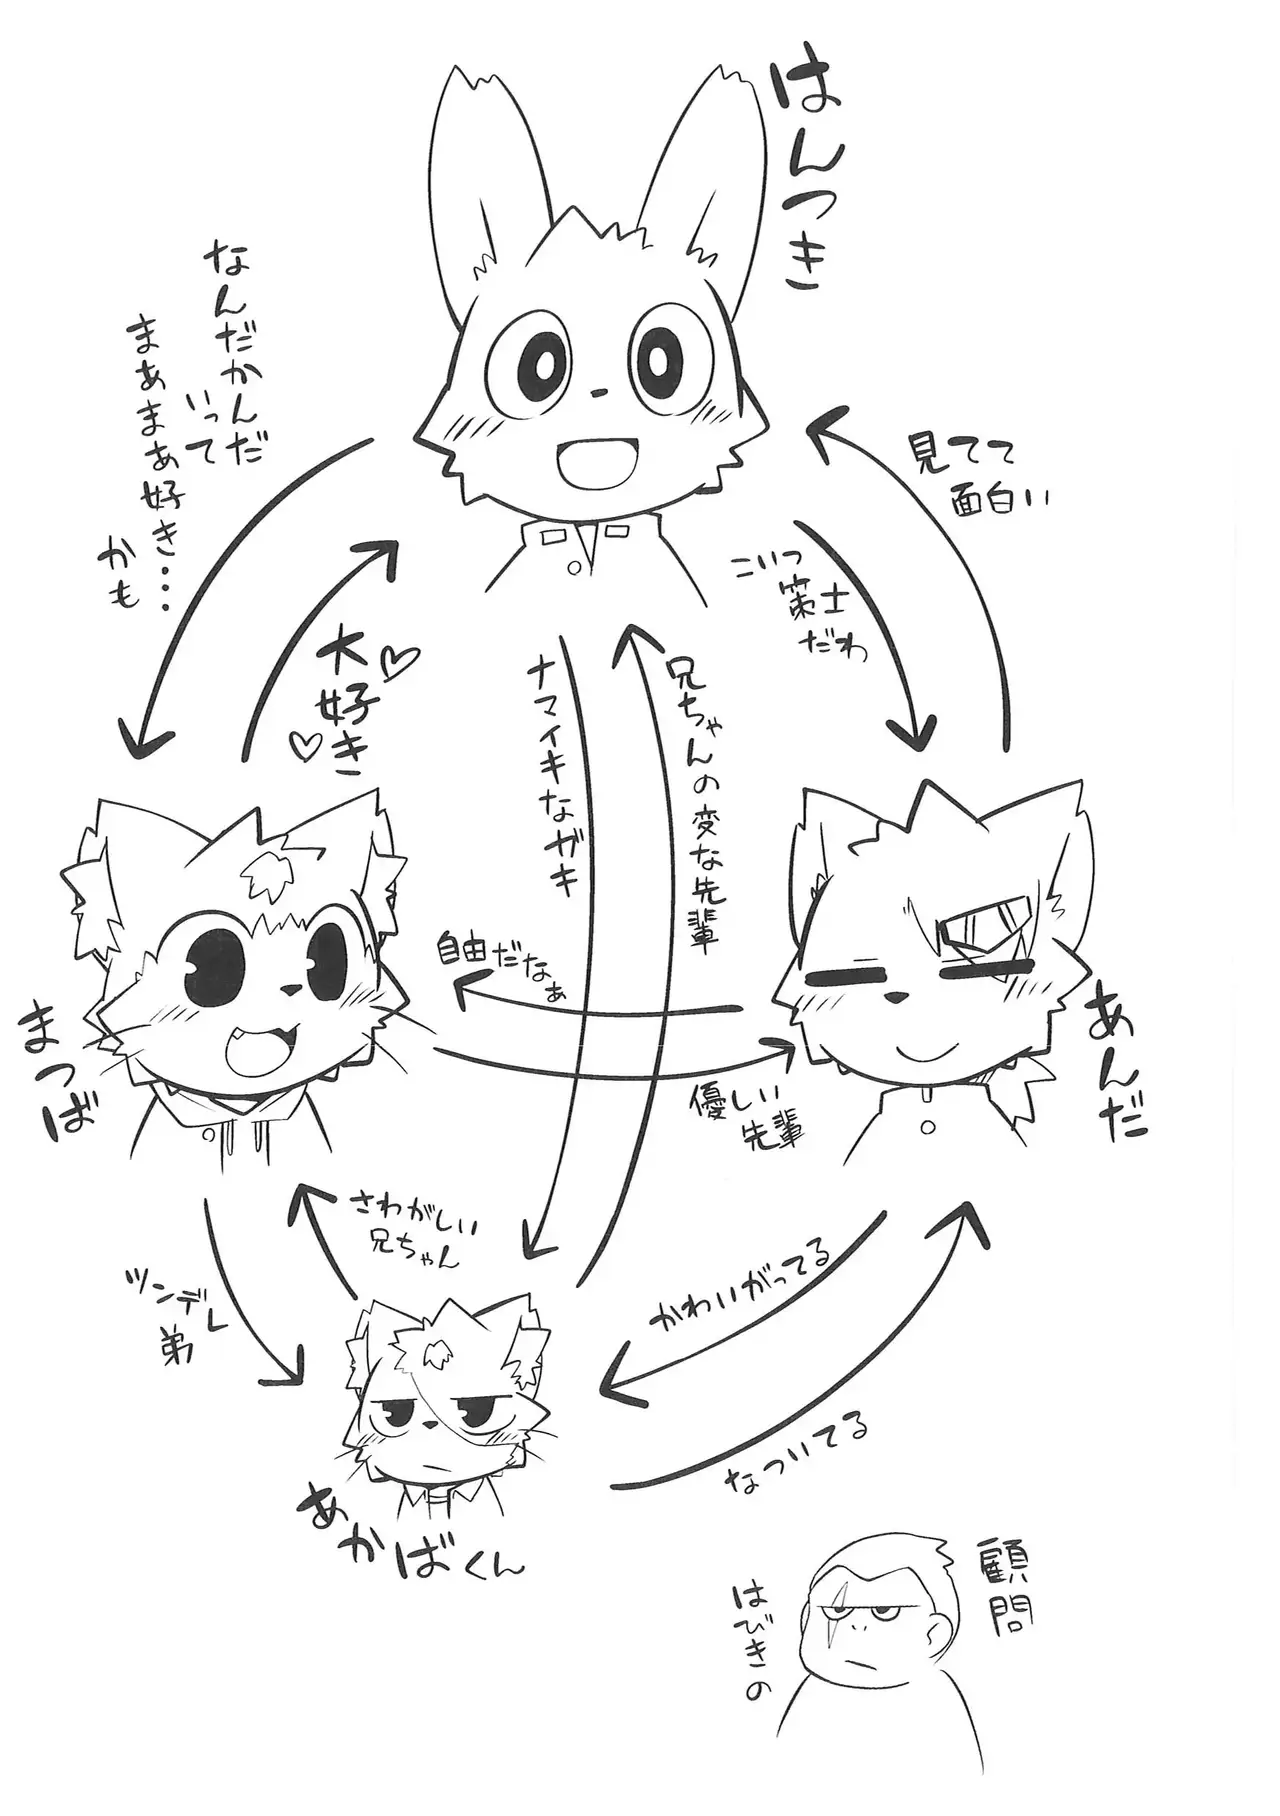 はんつき
なんだかんだ
いって
まあまあ好き…
かも
見てて
面白い
こいつ
策士
だわ
大好き
ナマイキなガキ
兄ちゃんの変な先輩
自由だなぁ
優しい
先輩
まつば
あんだ
さわがしい
兄ちゃん
ツンデレ
弟
かわいがってる
なついてる
あかばくん
顧問
はびきの